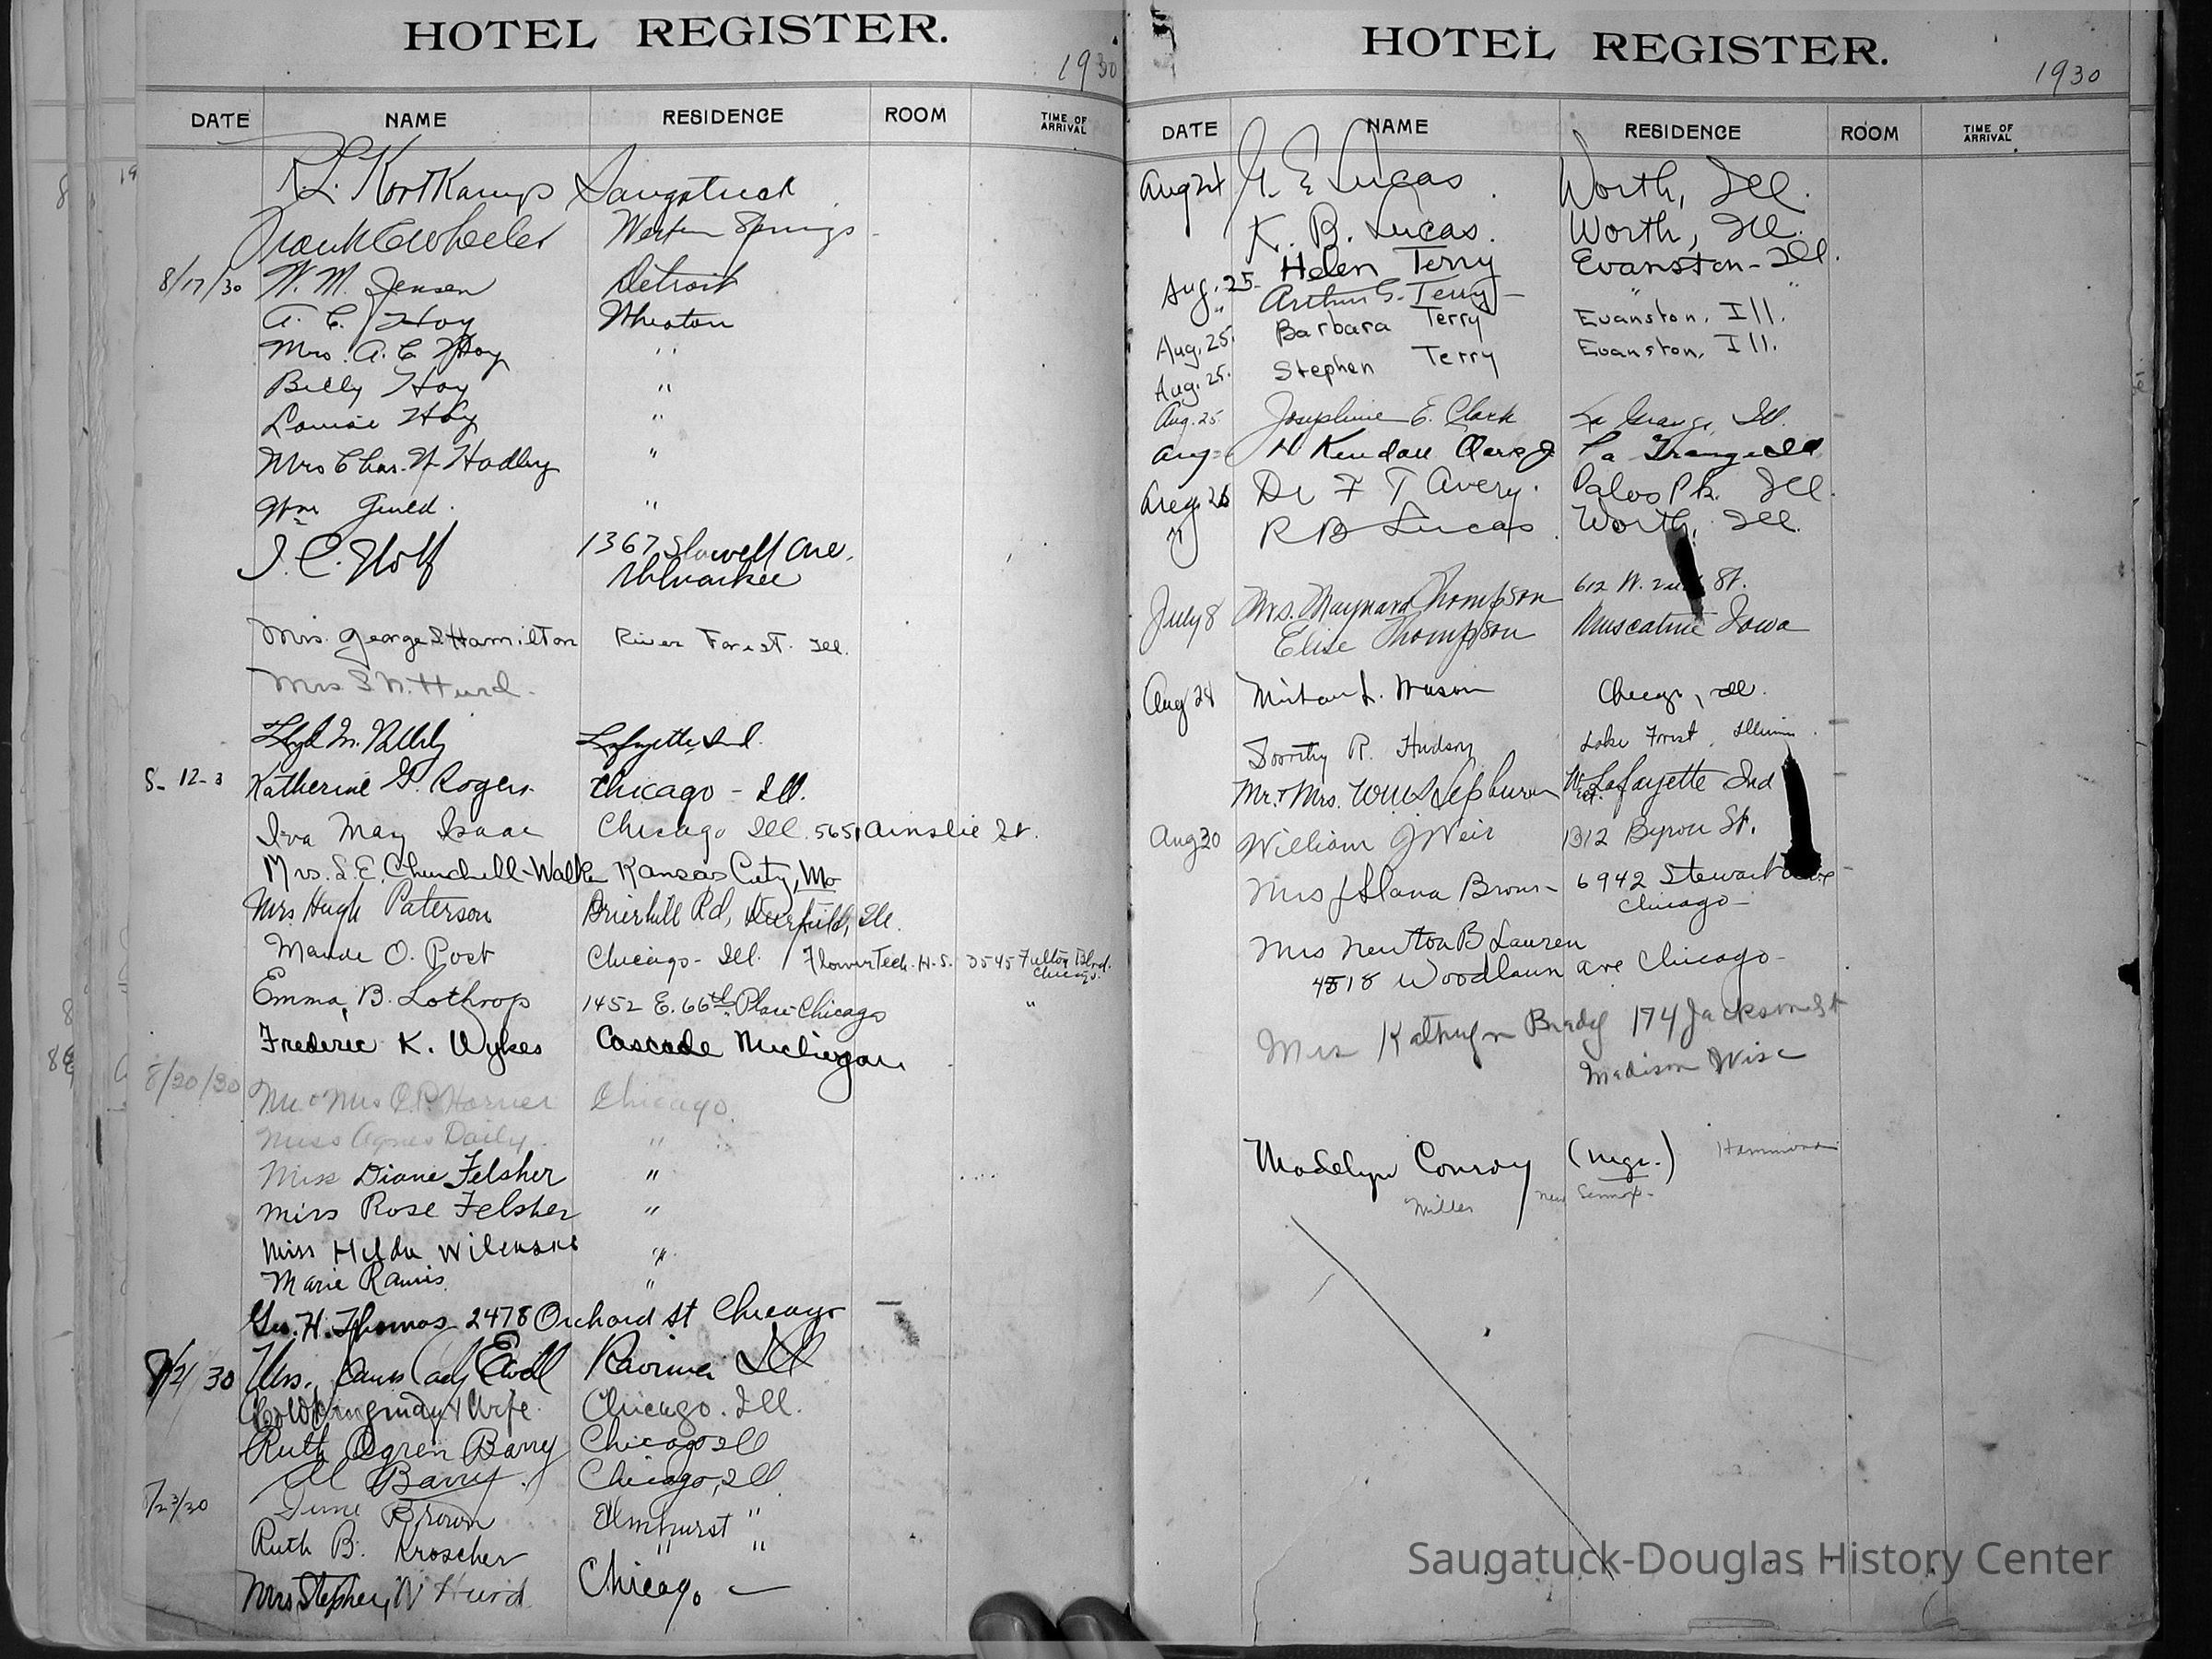 HOTEL REGISTER.
1930
DATE NAME RESIDENCE ROOM TIME OF ARRIVAL
R. L. Kortkamp Saugatuck
Frank C Wheeler Western Springs
8/17/30 W. M. Jensen Detroit
A. C. Hoy Wheaton
Mrs. A. C. Hoy "
Billy Hoy "
Louise Hoy "
Mrs Chas. H Hadley "
Wm Guild. "
J. C. Wolf 1367 Stowell Ave.
Milwaukee
Mrs. George S Hamilton River Forest. Ill.
Mrs S W. Hurd.
Lafayette, Ind.
Katherine G. Rogers Chicago - Ill.
Iva May Isaac Chicago Ill. 5651 Ainslie St.
Mrs. S. E. Churchell-Walker Kansas City, Mo
Mrs Hugh Paterson Brierhill Rd, Deerfield, Ill.
Maude O. Post Chicago- Ill. / Flower Tech. H. S. 3545 Fulton Blvd.
Chicago.
Emma B. Lothrop 1452 E. 66th Place Chicago "
Frederic K. Wykes Cascade Michigan
8/20/30 Mr & Mrs O. P. Horner Chicago.
Miss Agnes Daily. "
Miss Diane Felsher "
Miss Rose Felsher "
Miss Hilda Wilenski "
Marie Ramis "
Geo. H. Thomas 2478 Orchard St Chicago
8/21/30 Mrs. Ewell Ravinia Ill
& Wife. Chicago. Ill.
Ruth Ogren Barry Chicago Ill
Al Barry. Chicago, Ill.
8/23/30 June Brown Elmhurst "
Ruth B. Kroscher " "
Mrs Stephen W Hurd Chicago
HOTEL REGISTER.
1930
DATE NAME RESIDENCE ROOM TIME OF ARRIVAL
Aug 24 G. E Lucas Worth, Ill.
K. B. Lucas. Worth, Ill.
Aug. 25. Helen Terry Evanston - Ill.
" Arthur G. Terry " "
Aug. 25. Barbara Terry Evanston, Ill.
Aug. 25. Stephen Terry Evanston, Ill.
Aug. 25 Josephine E. Clark La Grange, Ill.
Aug H Kendall Clark Jr La Grange Ill
Aug. 26 Dr F T Avery. Palos Pk. Ill.
" R B Lucas. Worth, Ill.
July 8 Mrs. Maynard Thompson 612 W. 2nd St.
Elise Thompson Muscatine Iowa
Aug 28 L. Wason Chicago, Ill.
Dorothy R. Hudson Lake Forest, Illinois.
Mr. & Mrs. Wm Hepburn West Lafayette Ind
Aug 30 William J Weir 1312 Byron St.
Mrs Brown 6942 Stewart Ave
Chicago
Mrs Newton B Lauren
4518 Woodlawn ave Chicago-
Mrs Kathryn Brady 174 Jackson St
Madison Wisc
Madelyn Conroy (mgr.) Hammond
Miller new
Saugatuck-Douglas History Center